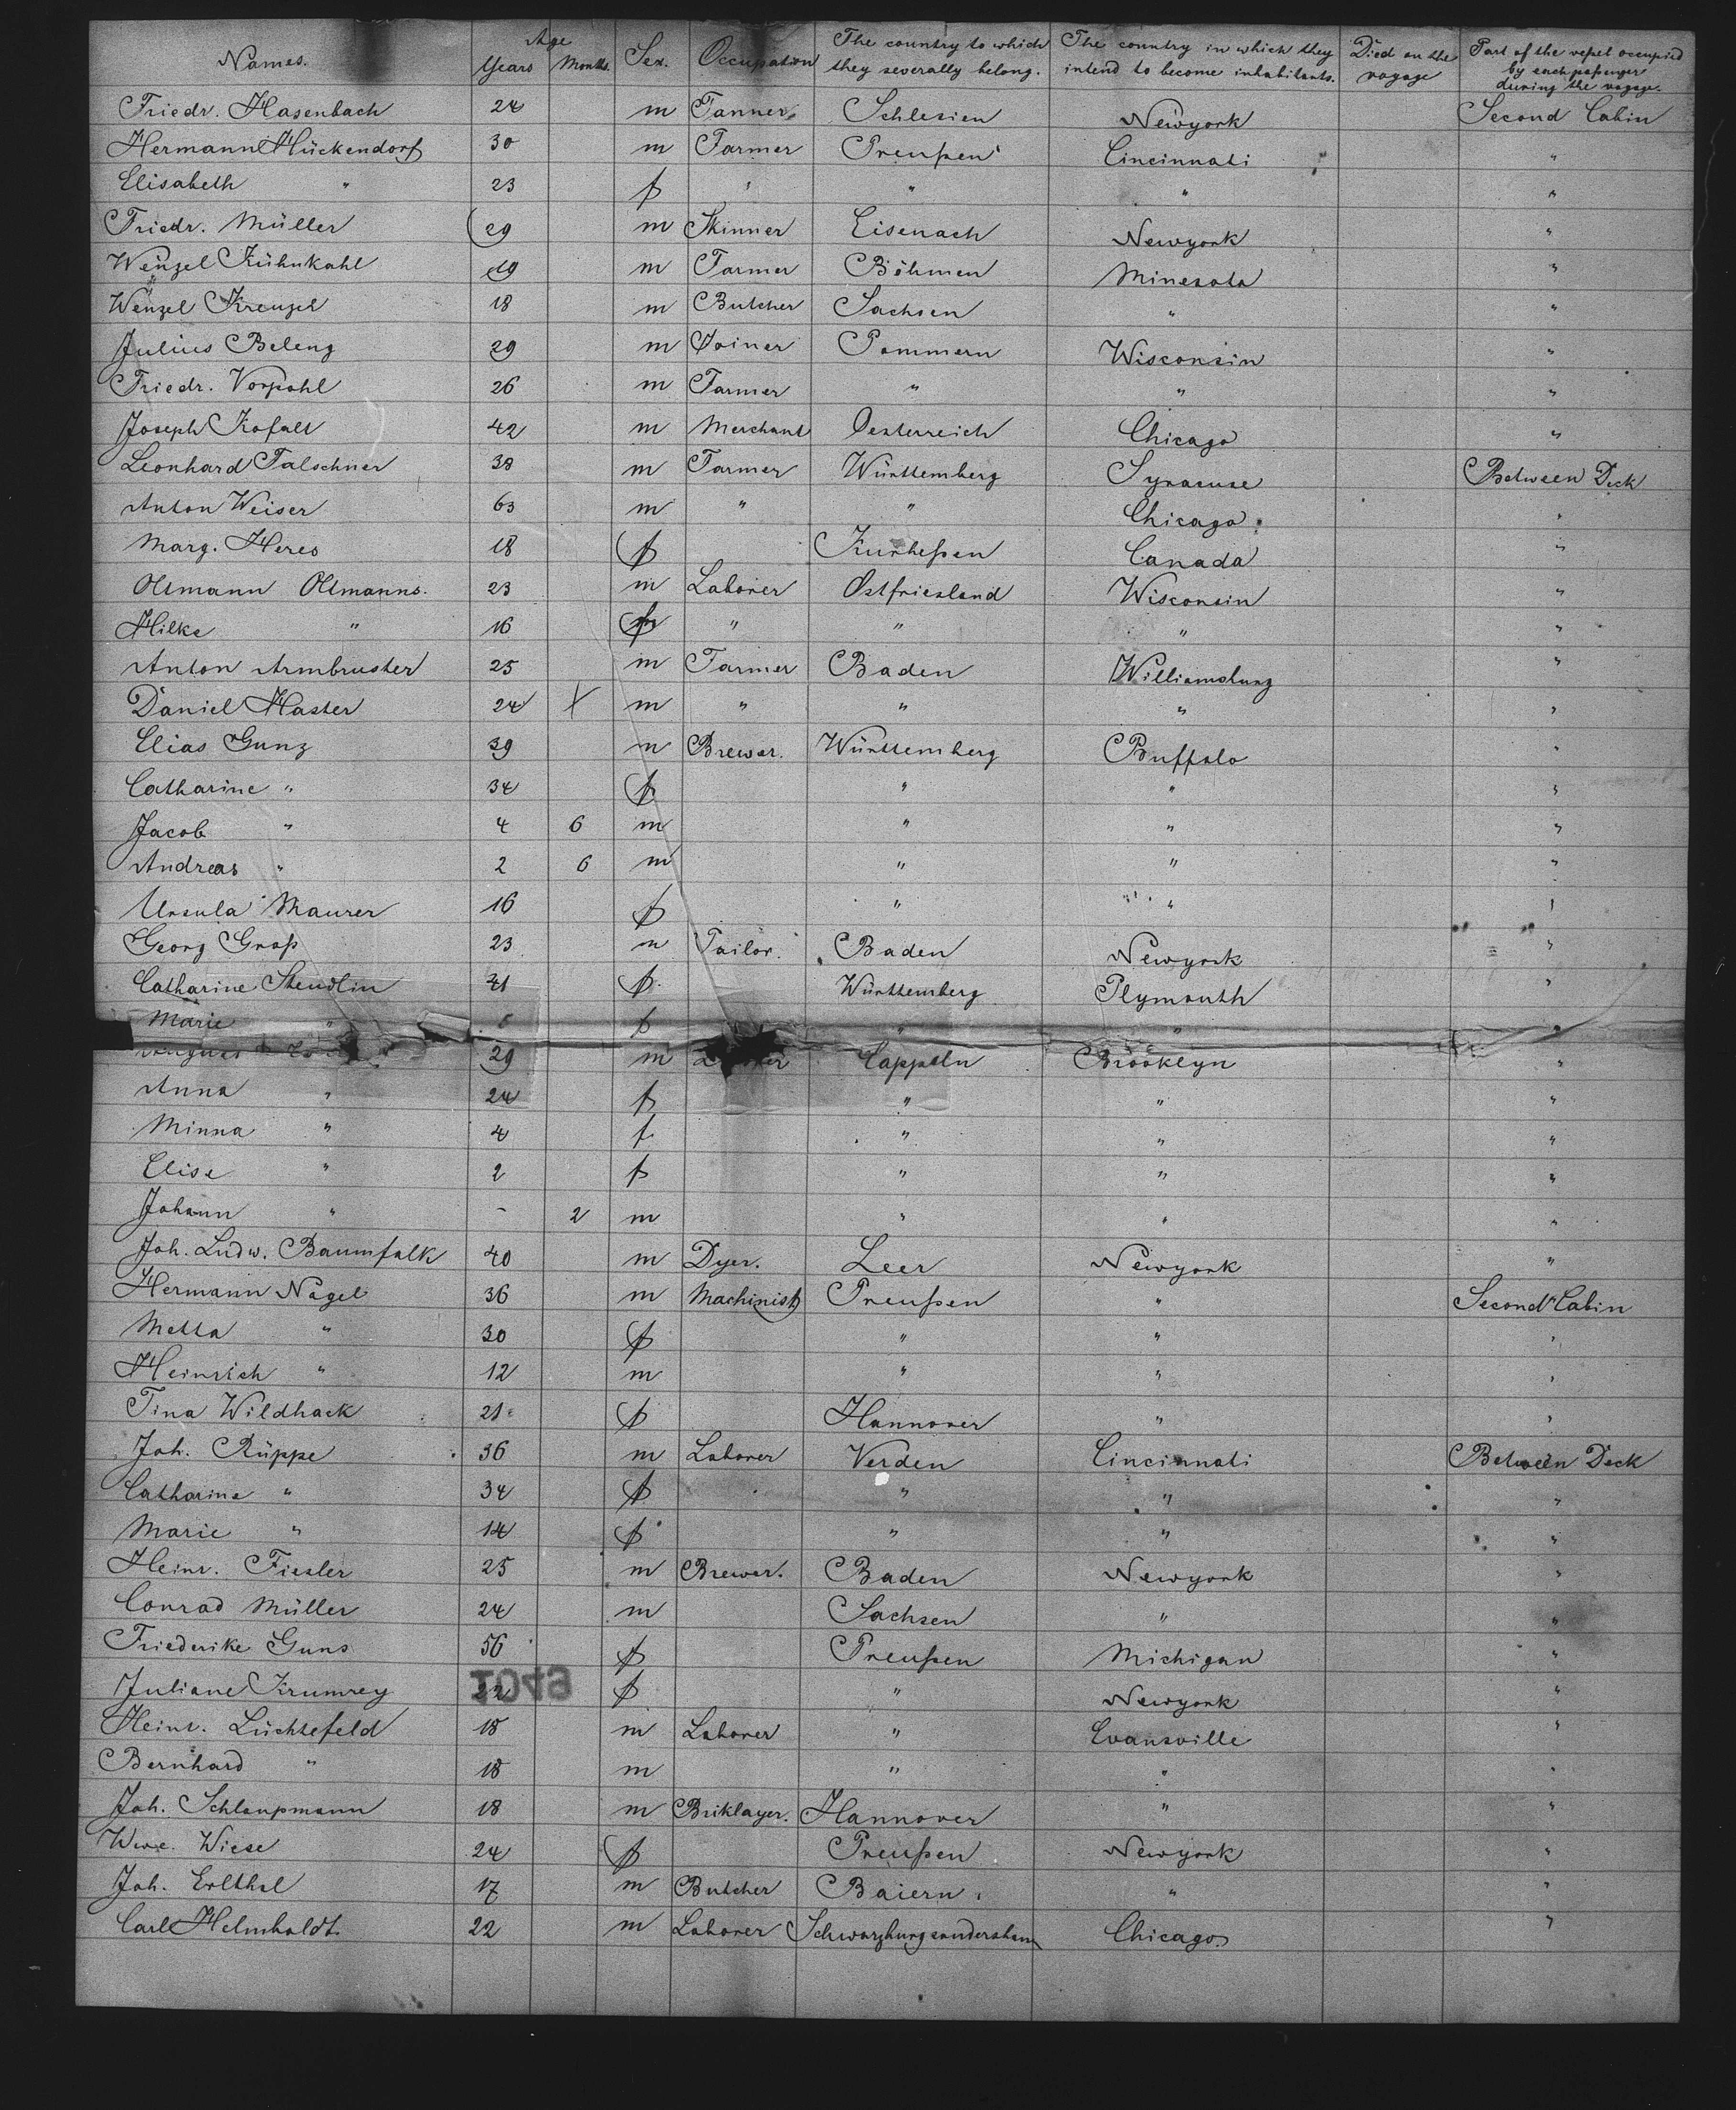 Names. Age Years Months. Sex. Occupation The country to which they severally belong. The country in which they intend to become inhabitants. Died on the voyage Part of the veßel occupied by each paßenger during the voyage.
Friedr. Hasenbach 24 m Tanner Schlesien Newyork Second Cabin
Hermann Hückendorf 30 m Farmer Preußen Cincinnati "
Elisabeth " 23 f " " " "
Friedr. Müller 29 m Skinner Eisenach Newyork "
Wenzel Kühnkahl 19 m Farmer Böhmen Minesota "
Wenzel Kreuzel 18 m Butcher Sachsen " "
Julius Beleng 29 m Joiner Pommern Wisconsin "
Friedr. Vorpahl 26 m Farmer " " "
Joseph Kofalt 42 m Merchant Oesterreich Chicago "
Leonhard Falschner 38 m Farmer Württemberg Syracuse Between Deck
Anton Weiser 63 m " " Chicago "
Marg. Heres 18 f Kurheßen Canada "
Oltmann Oltmanns. 23 m Laborer Ostfriesland Wisconsin "
Hilke " 16 f " " " "
Anton Armbruster 25 m Farmer Baden Williamsburg "
Daniel Haster 24 X m " " " "
Elias Gunz 39 m Brewer. Württemberg Buffalo "
Catharine " 34 f " " "
Jacob " 4 6 m " " "
Andreas " 2 6 m " " "
Ursula Maurer 16 f " " "
Georg Groß 23 m Tailor. Baden Newyork "
Catharine Steudlin 41 f. Württemberg Plymouth "
Marie " f " " "
29 m Cappeln Brooklyn "
Anna " 24 f " " "
Minna " 4 f. " " "
Elise " 2 f " " "
Johann " - 2 m " " "
Joh. Ludw. Baumfalk 40 m Dyer. Leer Newyork "
Hermann Nagel 36 m Machinist Preußen " Second Cabin
Metta " 30 f " " "
Heinrich " 12 m " " "
Tina Wildhack 21 f Hannover " "
Joh. Rüppe 36 m Laborer Verden Cincinnati Between Deck
Catharine " 34 f " " "
Marie " 14 f " " "
Heinr. Fiesler 25 m Brewer. Baden Newyork "
Conrad Müller 24 m Sachsen " "
Friederike Guns 56 f Preußen Michigan "
Juliane Krumrey 22 f " Newyork "
Heinr. Lüchtefeld 18 m Laborer " Evansville "
Bernhard " 18 m " " "
Joh. Schlaupmann 18 m Briklayer. Hannover " "
Wwe. Wiese 24 f Preußen Newyork "
Joh. Erlthal 17 m Butcher Baiern " "
Carl Helmholdt. 22 m Laborer Chicago. "
1049